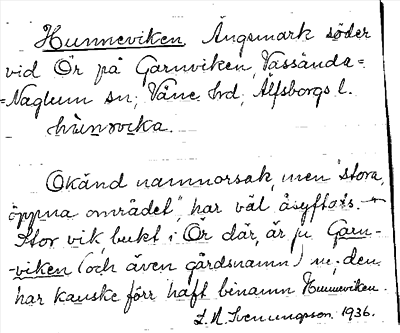 Hunneviken, Ängsmark söder
vid Ör på Garnviken, Vassända=
=Naglum sn, Väne hd, Älfsborgs l.
hùnəvika.
Okänd namnorsak, men "stora,
öppna området" har väl åsyftats.
Stor vik, bukt i Ör där, är ju Garn-
-viken (och även gårdsnamn) men den
har kanske förr haft binamn Hunneviken.
1936.